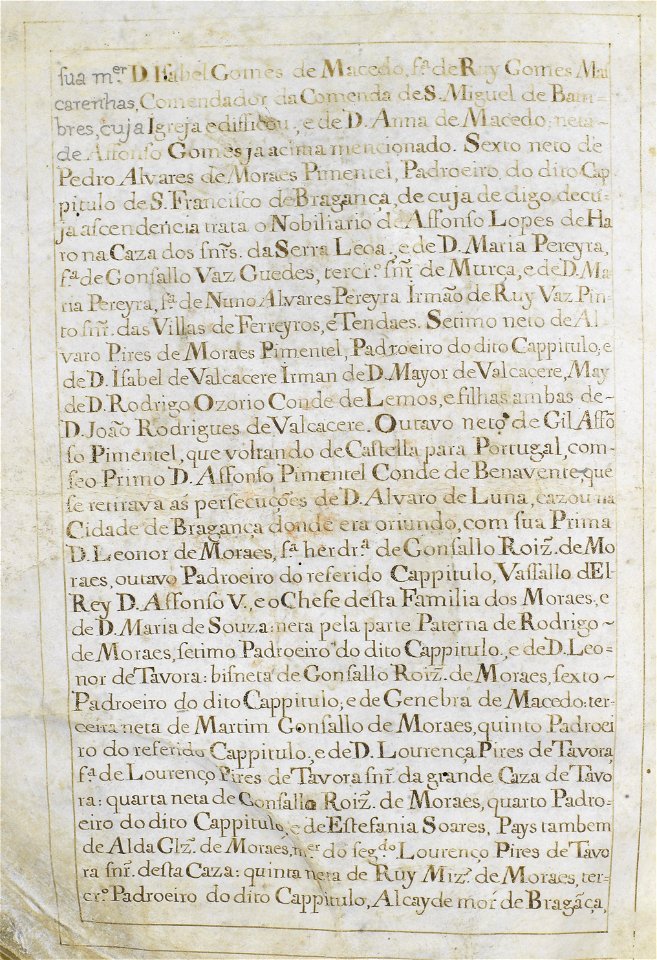 sua m.er D. Isabel Gomes de Macedo, f.ª de Ruy Gomes Mas
carenhas, Comendador da Comenda de S. Miguel de Bam-
bres, cuja Igreja edifficou, e de D. Anna de Macedo: neta
de Affonso Gomes ja acima mencionado. Sexto neto de
Pedro Alvares de Moraes Pimentel, Padroeiro do dito Cap
pitulo de S. Francisco de Bragança, de cuja de digo de cu-
ja ascendencia trata o Nobiliario de Affonso Lopes de Ha
ro na Caza dos snr̃s. da Serra Leoa, e de D. Maria Pereyra,
f.ª de Gonsallo Vaz Guedes, tercr.º snr̃ de Murça, e de D. Ma
ria Pereyra, f.ª de Nuno Alvares Pereyra Irmão de Ruy Vaz Pin
to snr̃. das Villas de Ferreyros, e Tendaes. Setimo neto de Al
varo Pires de Moraes Pimentel, Padroeiro do dito Cappitulo, e
de D. Isabel de Valcacere Irman de D. Mayor de Valcacere, May
de D. Rodrigo Ozorio Conde de Lemos, e filhas ambas de-
D. João Rodrigues de Valcacere. Outavo neto de Gil Affõ
so Pimentel, que voltando de Castella para Portugal, com-
seo Primo D. Affonso Pimentel Conde de Benavente, que
se retirava as persecuções de D. Alvaro de Luna, cazou na
Cidade de Bragança donde era oriundo, com sua Prima
D. Leonor de Moraes, f.ª herdr.ª de Gonsallo Roiz̃. de Mo
raes, outavo Padroeiro do referido Cappitulo, Vassallo dEl-
Rey D. Affonso V., e o Chefe desta Familia dos Moraes, e
de D. Maria de Souza: neta pela parte Paterna de Rodrigo ~
de Moraes, setimo Padroeiro do dito Cappitulo, e de D. Leo=
nor de Tavora: bisneta de Gonsallo Roiz̃. de Moraes, sexto ~
Padroeiro do dito Cappitulo, e de Genebra de Macedo: ter-
ceira neta de Martim Gonsallo de Moraes, quinto Padroei
ro do referido Cappitulo, e de D. Lourença Pires de Tavora,
f.ª de Lourenço Pires de Tavora snr̃ da grande Caza de Tavo
ra: quarta neta de Gonsallo Roiz̃. de Moraes, quarto Padro=
eiro do dito Cappitulo, e de Estefania Soares, Pays tambem
de Alda Glz̃. de Moraes, m.er do seg.do Lourenço Pires de Tavo
ra snr̃. desta Caza: quinta neta de Ruy Miz̃. de Moraes, ter-
cr.º Padroeiro do dito Cappitulo, Alcayde mor de Bragãça,